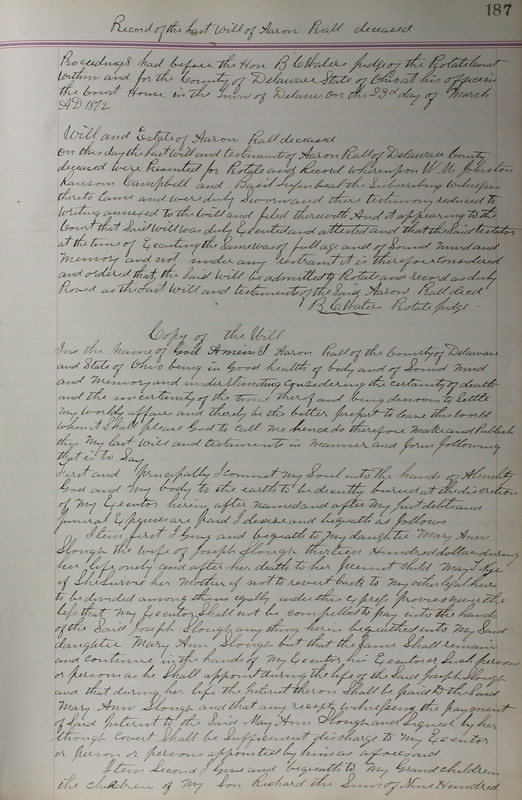 187
Record of the Last Will of Aaron Rall deceased
Proceedings had before the Hon B C Waters judge of the Probate Court
within and for the County of Delaware State of Ohio at his office in
the Court House in the Town of Delaware on the 23d day of March
AD 1872
Will and Estate of Aaron Rall deceased
On this day the last will and testament of Aaron Rall of Delaware County
deceased were Presented for Probate and Record whereupon W. M. Johnston
Ransom Campbell and Basil the Subscribing witnesses
thereto came and were duly Sworn and there testimony reduced to
writing annexed to the will and filed therewith And it appearing to the
Court that Said will was duly Executed and attested and that the Said testator
at the time of Executing the Same was of full age and of Sound mind and
Memory and not under any restraint it is therefore Considered
and ordered that the Said will be admitted to Probate and record as duly
Proved as the last will and testament of the Said Aaron Rall decd
B. C. Waters Probate judge
Copy of the Will
In the name of God Amen I Aaron Rall of the County of Delaware
and State of Ohio being in Good health of body and of Sound mind
and memory and understanding considering the certainty of death
and the uncertainty of the time therof and being desirous to Settle
My worldly affairs and thereby be the better prepart to leave this world
when it Shall please God to call me hence do therefore make and Publish
this My last will and testament in Manner and form following
that is to Say
First and principally I commit my Soul into the hands of Almighty
God and my body to the earth to be decently buried at the discretion
of my Executor herein after named and after My just debts and
funeral Expenses are paid I devise and bequeath as follows
Item first I Give and bequeath to my daughter Mary Ann
Slough the wife of Joseph Slough thirteen Hundred dollars during
her life only and after her death to her present child Mary I
if She Survive her Mother if not to revert back to My other legal heirs
to be divided among them equally under this express proviso never the
less that my Executor Shall not be compelled to pay into the hands
of the Said Joseph Slough any thing herein bequeathed unto My Said
daughter Mary Ann Slough but that the Same Shall remain
and continue in the hands of my Executor his Executors or Such person
or persons as he Shall appoint during the life of the Said Joseph Slough
and that during her life the Interest theron Shall be paid to the Said
Mary Ann Slough and that any receipt witnessing the payment
of Said Interest to the Said Mary Ann Slough and Signed by her
though Covert Shall be Sufficient discharge to My Executor
or person or persons appointed by him as aforesaid
Item Second I Give and bequeath to My Grand children
the children of My Son Richard the Sum of Nine Hundred